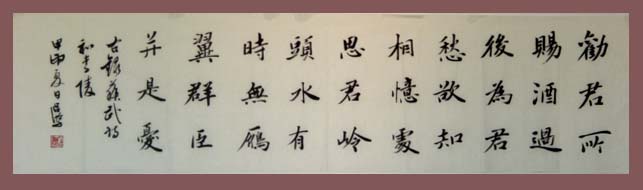 勸君所
賜酒過
後為君
愁欲知
相憶處
思君岭
頭水有
時無鴈
翼群臣
并是憂
古録蘇武詩
和李陵
甲申夏日